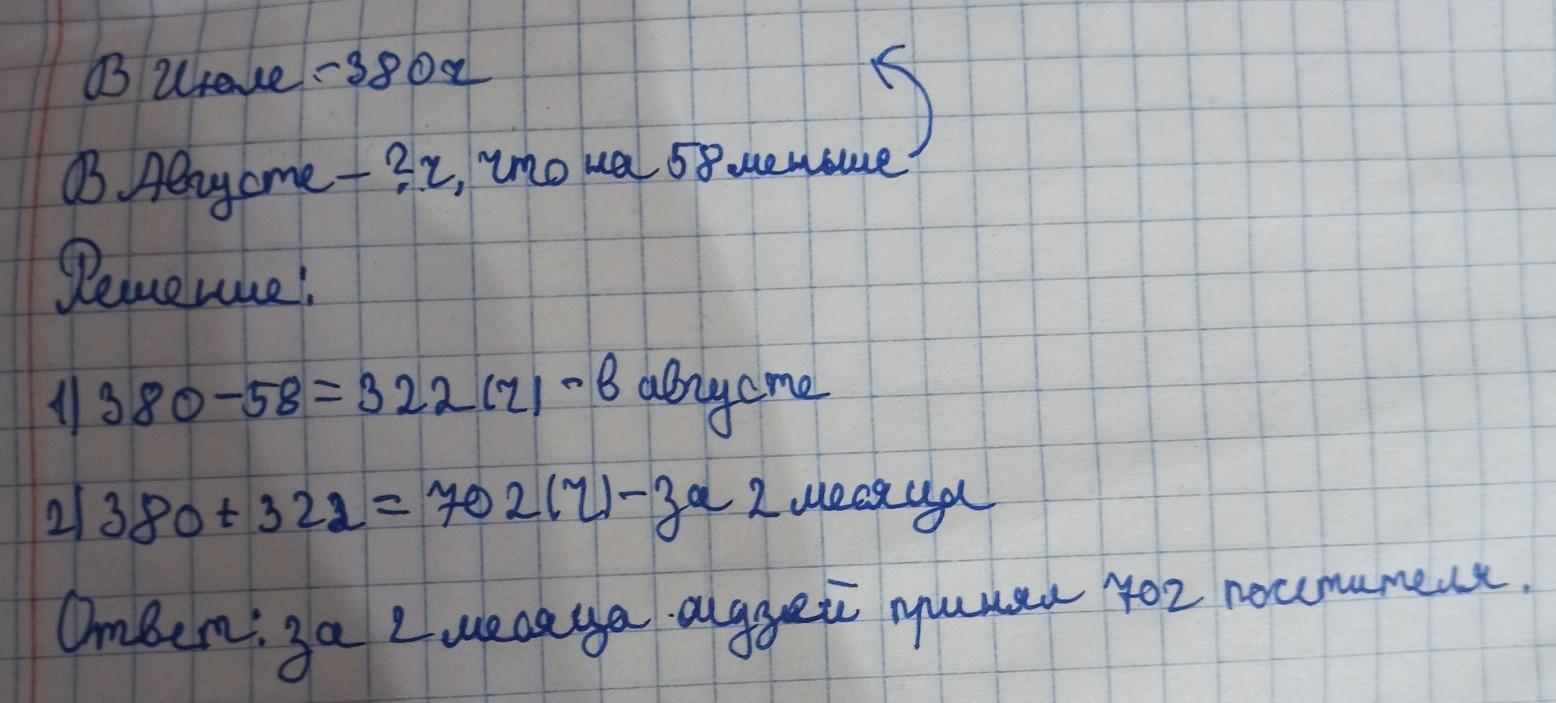 В Июле - 380 ч
В Августе - ? ч, что на 58 меньше
Решение:
1) 380 - 58 = 322 (ч) - в августе
2) 380 + 322 = 702 (ч) - за 2 месяца
Ответ: за 2 месяца музей принял 702 посетителя.